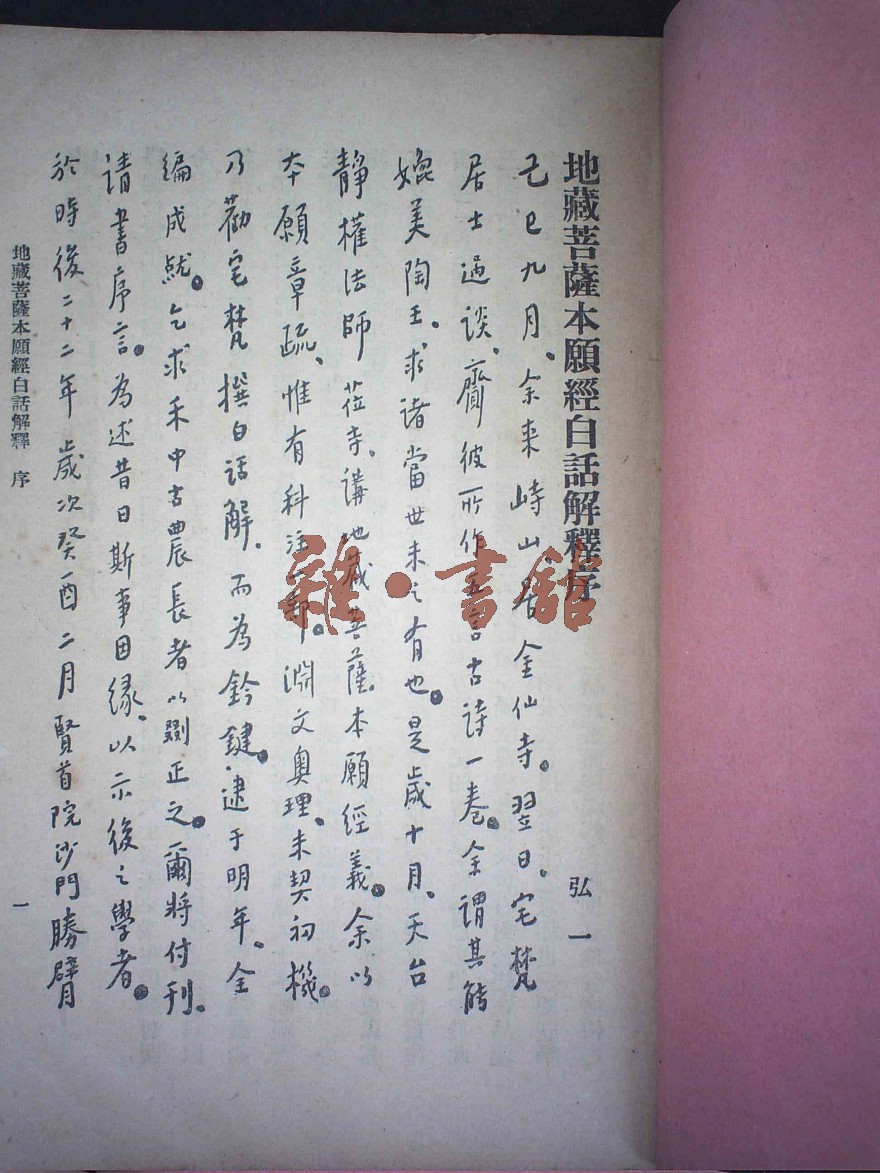 地藏菩薩本願經白話解釋序
弘一
己巳九月、余来峙山、居金仙寺。翌日、宅梵
居士過談、齎彼所作五言古詩一卷。余謂其能
媲美陶王、求諸當世未之有也。是歲十月、天台
靜權法師蒞寺、講地藏菩薩本願經義。余以
本願章疏、惟有科注一部。淵文奥理、未契初機。
乃勸宅梵撰白話解、而為鈐鍵。逮于明年、全
編成就。乞求禾中古農長者以劂正之。爾將付刊。
請書序言。為述昔日斯事因緣、以示後之學者。
於時後二十二年歲次癸酉二月賢首院沙門勝臂
地藏菩薩本願經白話解釋 序
一
雜·書館